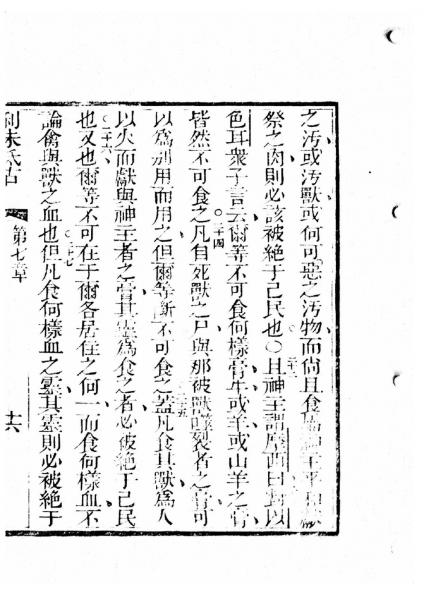 之汚或汚獸或何可惡之汚物而尙且食屬神主平和祭
祭之肉則必該被絕于己民也○且神主謂摩西曰對以
色耳眾子言云爾等不可食何樣膏牛或羊或山羊之膏
皆然不可食之二十四凡自死獸之尸與那被獸噬裂者之膏可
以爲別用而用之但爾等斷不可食之二十五蓋凡食其獸爲人
以火而獻與神主者之膏其靈爲食之者必被絕于己民
也二十六又也爾等不可在于爾各居住之何一而食何樣血不
論禽與獸之血也二十七但凡食何樣血之靈其靈則必被絕于
利未氏古 第七章 十六